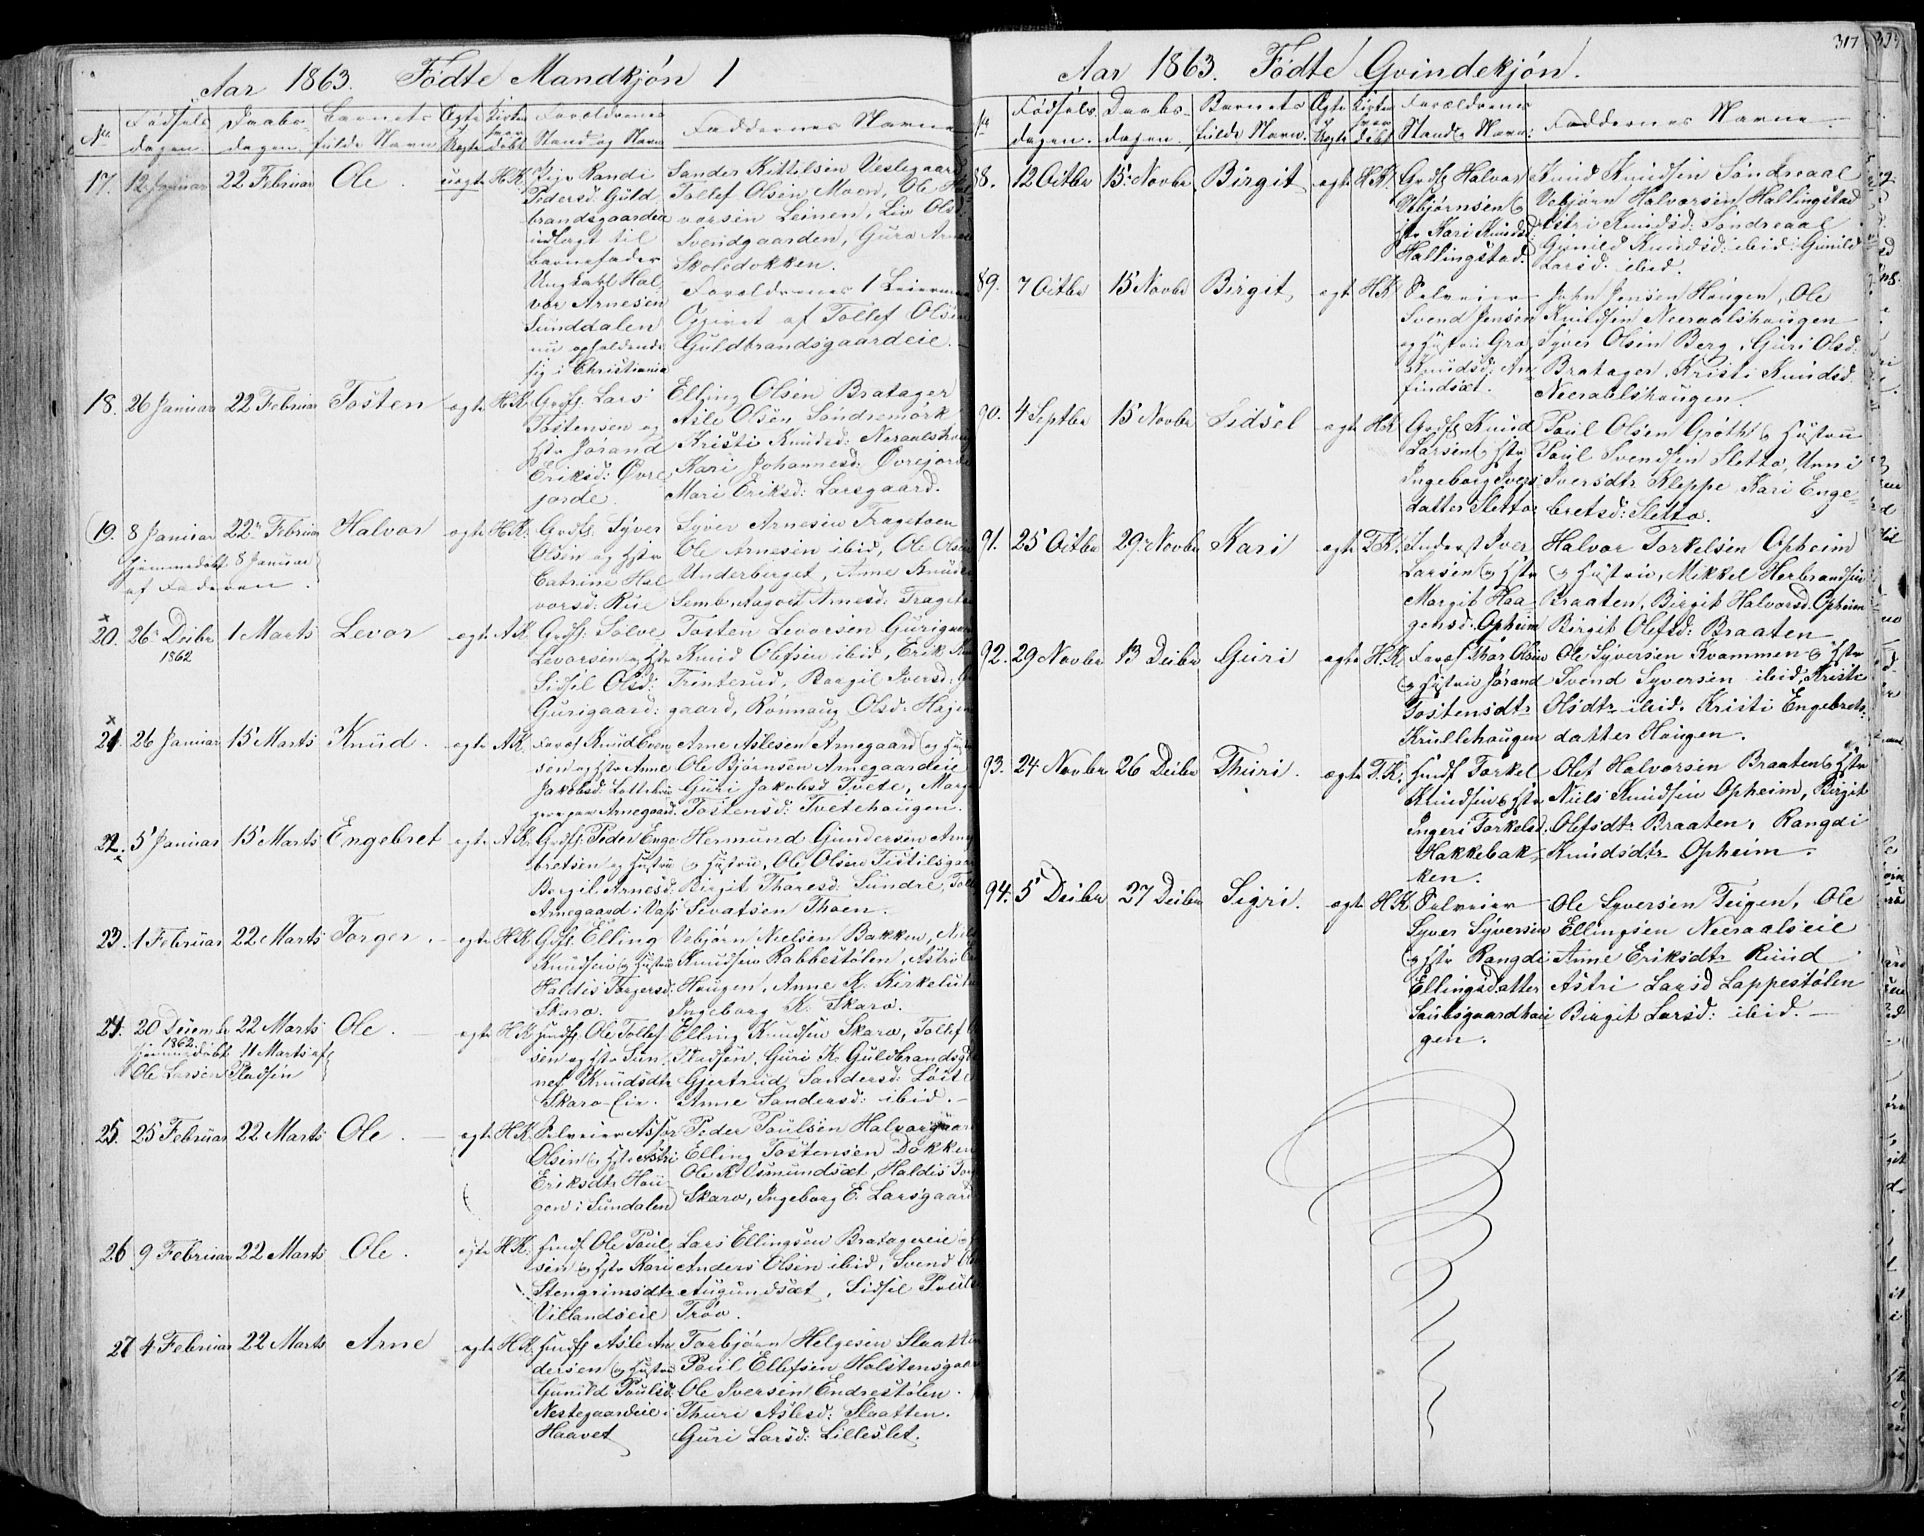 Aar 1863. Fødte Mandkjøn 1
No
Fødsels
dagen.
Daabs-
dagen.
Barnets
fulde Navn
Ægte
Uægte
Forældrenes
Stand og Navn
Faddernes Navne
17. 12 Januar 22 Februar Ole. uægte H.K. Pige Randi
Pedersd. Guld
brandsgaarden
udlagt til
barnefader
Ungkarl Hal
vor Arnesen
Sunddalen
nu opholdende
sig i Christiania
Sander Kittilsen Vestegaard
Tollef Olsen Moen, Ole Hal
vorsen Leinen, Liv Olsd:
Svendgaarden, Guro Arnesd
Skoledokken.
Forældrenes 1 Leiermaal
Opgivet af Tollef Olsen
Guldbrandsgaardeie.
18. 26 Januar 22 Februar Tosten ægte H.K. Grdf. Lars
Tostensen og
Hstr Jørand
Eriksd: Øvre
jorde.
Elling Olsen Bratager
Asle Olsen Søndremørk
Kristi Knudsd: Neraalshaug
Kari Johannesd: Øvrejorde
Mari Eriksd: Larsgaard.
19. 8 Januar 22 Februar Halvor ægte H.K. Grdf. Syver
hjemmedøbt 8 Januar
af Faderen.
Olsen og Hstr
Catrine Hal
vorsd: Rue
Syver Arnesen Trageton
Ole Arnesen ibid, Ole Olsen
Underberget, Anne Knudsd
Semb, Aagot Arnesd: Trageton
20. 26 Decbr 1 Marts Levor ægte A.K. Grdf. Solve
1862
Levorsen og Hstr
Sidsel Olsd:
Gurigaard:
Tosten Levorsen Gurigaard
Knud Olefsen ibid, Erik
Trinterud, Børgil Iversd:
gaard, Rønnaug Olsd: Hagen
21. 26 Januar 15 Marts Knud. ægte A.K. Knud Even
sen og Hstr Anne
Jakobsd.
Arnegaard.
Arne Aslesen Arnegaard og Hustru
Ole Bjørnsen Arnegaardeie
Guri Jakobsd Tvete, Marg
Tostensd: Tvetehaugen.
22. 5 Januar 15 Marts Engebret ægte A.K. Grdf. Peder Enge
bretsen og Hustru
Børgil Arnesd.
Arnegaard i Vats
Hermund Gundersen Arne
og Hustru, Ole Olsen Tistilsgaar
Birgit Thoresd: Sundre, Tol
Sevatsen Thoen.
23. 1 Februar 22 Marts Torger. ægte H.K. Grdf. Elling
Knudsen og Hustru
Haldis Torgersd.
Skaro.
Vebjørn Nielsen Bakken, Niels
Knudsen Rabbestølen, Astri
Haugen, Anne K. Kirkelut
Ingeborg K. Skaro.
24. 20 Decemb 22 Marts Ole. ægte H.K. Husf. Ole Tollef
1862
hjemmedøbt 11 Marts af
Ole Larsen Pladsen
sen og Hstr Sun
nef Knudsdtr
Skaro-Eie.
Elling Knudsen Skaro, Tollef
Pladsen, Guri K. Guldbrandsg
Gjertrud Sandersd: Løite
Anne Sandersd: ibid.
25. 25 Februar 22 Marts Ole. ægte H.K. Selveier Assor
Olsen og Hstr Astri
Eriksdtr Hau
gen i Sundalen
Peder Poulsen Halvorgaard
Elling Tostensen Dokken
Ole K. Osmundsæt, Haldis Tor
Skaro, Ingeborg E. Larsgaard
26 9 Februar 22 Marts Ole. ægte H.K. Husf. Ole Poul
sen og Hstr Kari
Stengrimsdtr
Villandseie
Lars Ellingsen Bratagereie
Anders Olsen ibid, Svend
Augundsæt, Sidsel Pouls
Trøo.
27 4 Februar 22 Marts Arne ægte H.K. Husf. Asle An
dersen og Hustru
Gunild Poulsd:
Nestegaardeie i
Haavet
Torbjørn Helgesen Slaatten
Poul Ellefsen Halstensgaar
Ole Iversen Endrestølen.
Thuri Aslesd: Slaatten.
Guri Larsd: Lilleslet.
Aar 1863. Fødte Qvindekjøn. 317
Fødsels
dagen.
Daabs-
dagen.
Barnets
fulde Navn.
Ægte
Uægte
Forældrenes
Stand & Navn.
Faddernes Navne.
88. 12 Octbr 15 Novbr Birgit ægte H.K. Grdf. Halvor
Vebjørnsen og
Hstr Kari Knudsd.
Hallingstad.
Knud Knudsen Søndreaal
Vebjørn Halvorsen Hallingstad
Astri Knudsd: Søndreaal
Gunild Knudsd: ibid. Gunild
Larsd. ibid.
89. 7 Octbr 15 Novbr Birgit. ægte H.K. Selveier
Svend Jensen
og Hustru Gro
Knudsd: An
findsæt.
John Jensen Haugen, Ole
Knudsen Neeraalshaugen
Syver Olsen Berg, Guri Olsd:
Bratager, Kristi Knudsd.
Neeraalshaugen.
90. 4 Septbr 15 Novbr Sidsel ægte H.K. Grdf. Knud
Larsen og Hstr
Ingeborg Ivers
datter Sletto
Poul Olsen Grøth og Hustru
Poul Svendsen Sletto, Unni
Iversdtr Kleppe Kari Enge-
bretsd: Sletto.
91. 25 Octbr 29 Novbr Kari ægte T.K. Inderst Iver
Larsen og Hstr
Margit Haa-
gensd. Opheim
Halvor Torkelsen Opheim
og Hustru, Mikkel Herbrandsen
Braaten, Birgit Halvorsd. Opheim
Birgit Olefsd: Braaten
92. 29 Novbr 13 Decbr Guri ægte H.K. Thor Olsen
og Hustru Jørand
Tostensdtr
Krullehaugen
Ole Syversen Kvammen og Hstr
Svend Syversen ibid, Kristi
Olsdtr ibid. Kristi Engebrets-
datter Haugen.
93. 24 Novbr 26 Decbr Thuri. ægte T.K. Husf. Torkel
Knudsen og Hstr
Ingeri Torkelsd.
Hakkebak-
ken.
Olef Halvorsen Braaten og Hstr
Niels Knudsen Opheim, Birgit
Olefsdtr Braaten, Rangdi
Knudsdtr Opheim.
94. 5 Decbr 27 Decbr Sigri. ægte H.K. Selveier
Syver Syversen
og Hstr Rangdi
Ellingsdatter
Saubsgaardhau
gen.
Ole Syversen Teigen, Ole
Ellingsen Neeraalseie
Anne Eriksdtr Ruud
Astri Larsd Lappestølen
Birgit Larsd: ibid.